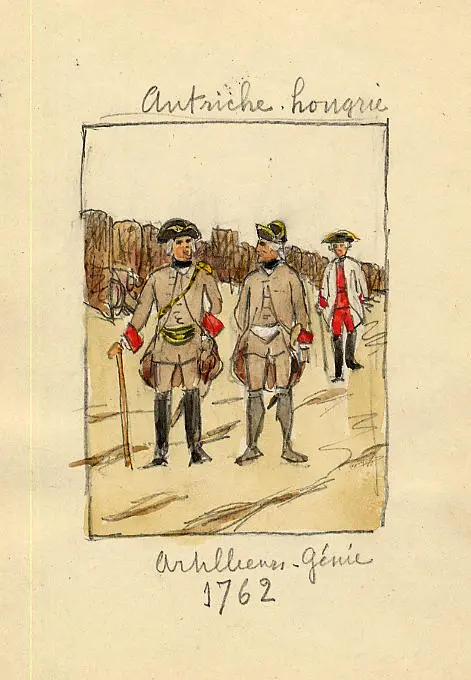 Autriche. hongrie
Artilleurs - Génie
1762